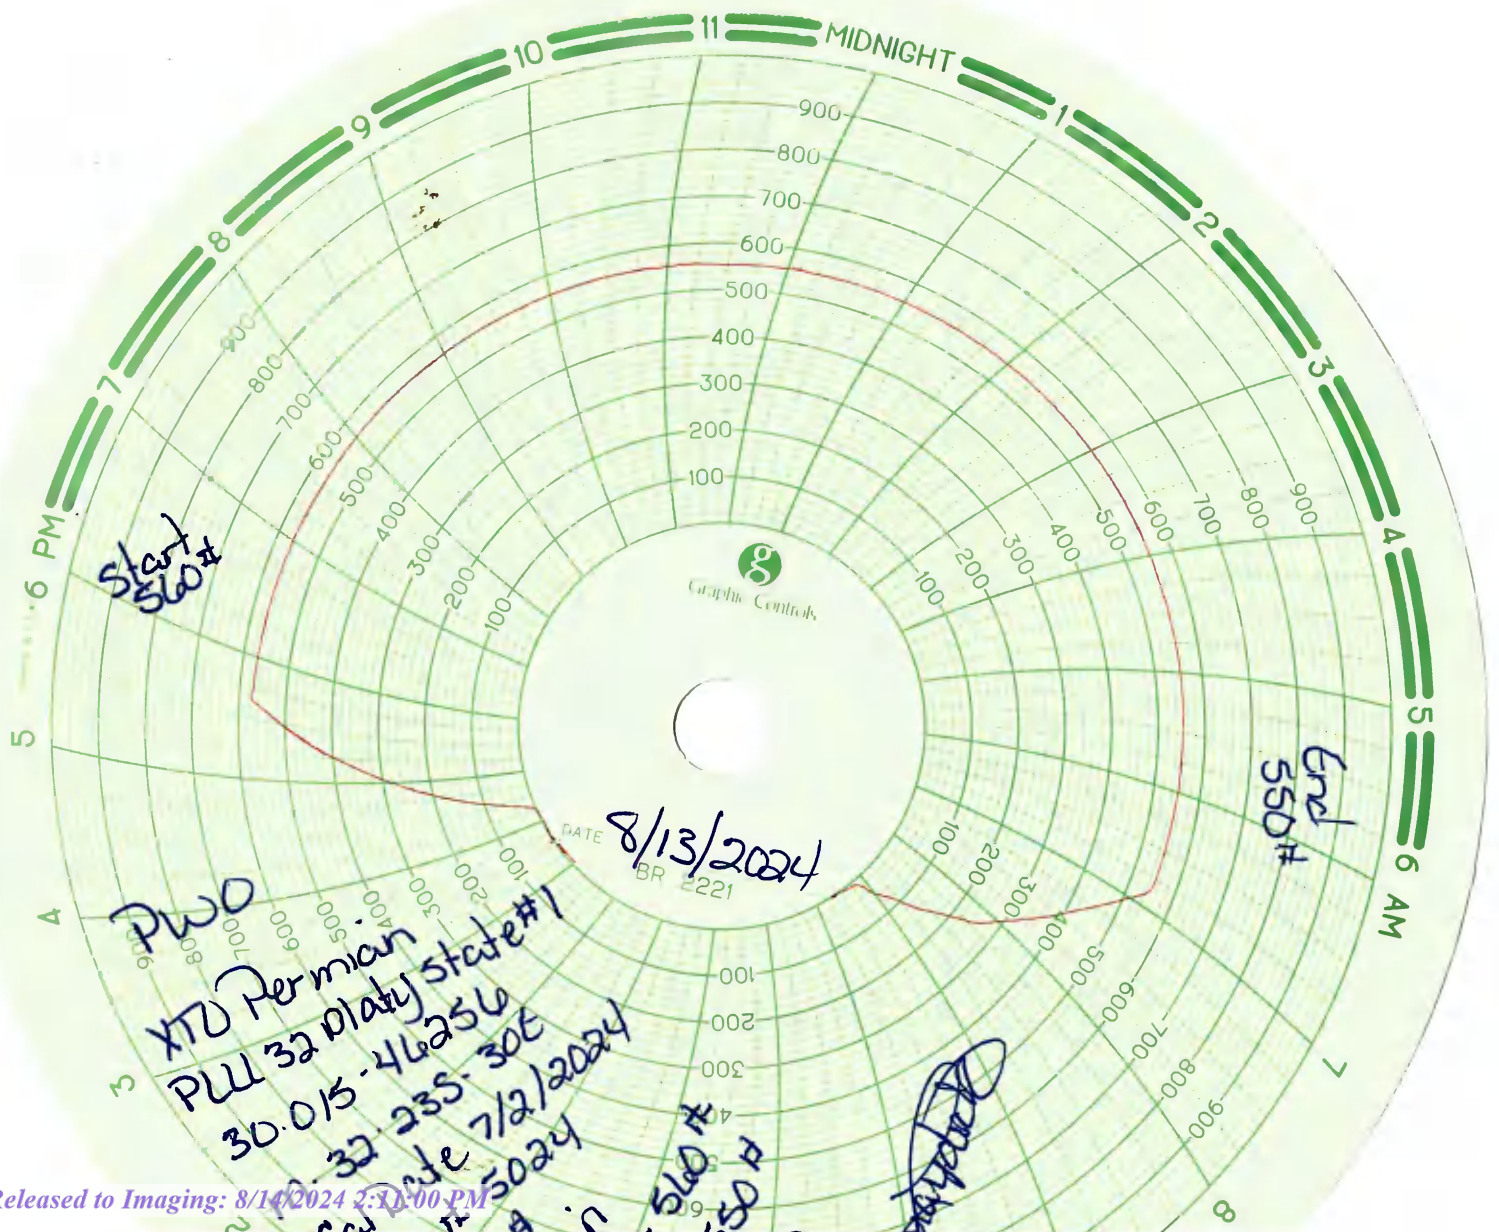 11
MIDNIGHT
1
2
3
4
5
6 AM
7
8
10
9
8
7
6 PM
5
4
3
2
900
800
700
600
500
400
300
200
100
900
800
700
600
500
400
300
200
100
900
800
700
600
500
400
300
200
100
100
200
300
400
500
600
700
800
900
100
200
300
400
500
600
700
900
100
200
300
Graphic Controls
DATE 8/13/2024
BR 2221
Start
560#
End
550#
PWO
XTO Permian
PLU 32 Platy State #1
30-015-46256
32-23S-30E
Date 7/2/2024
5024
560 #
550 #
Released to Imaging: 8/14/2024 2:11:00 PM